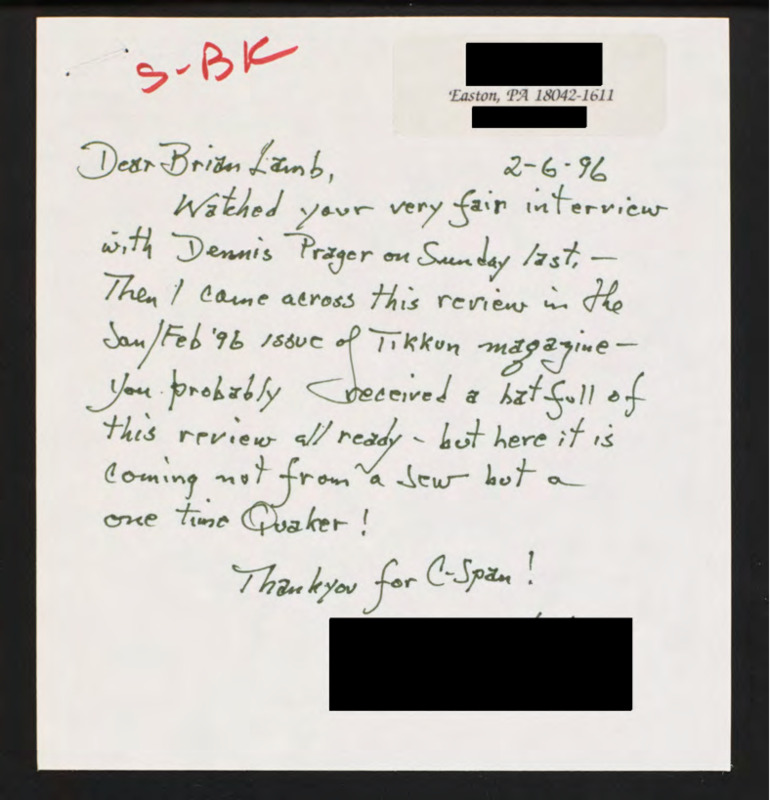 S-BK
Easton, PA 18042-1611
Dear Brian Lamb,
2-6-96
Watched your very fair interview
with Dennis Prager on Sunday last. —
Then I came across this review in the
Jan/Feb '96 issue of Tikkun magazine—
you probably received a hatfull of
this review all ready - but here it is
coming not from a Jew but a
one time Quaker!
Thankyou for C-Span!